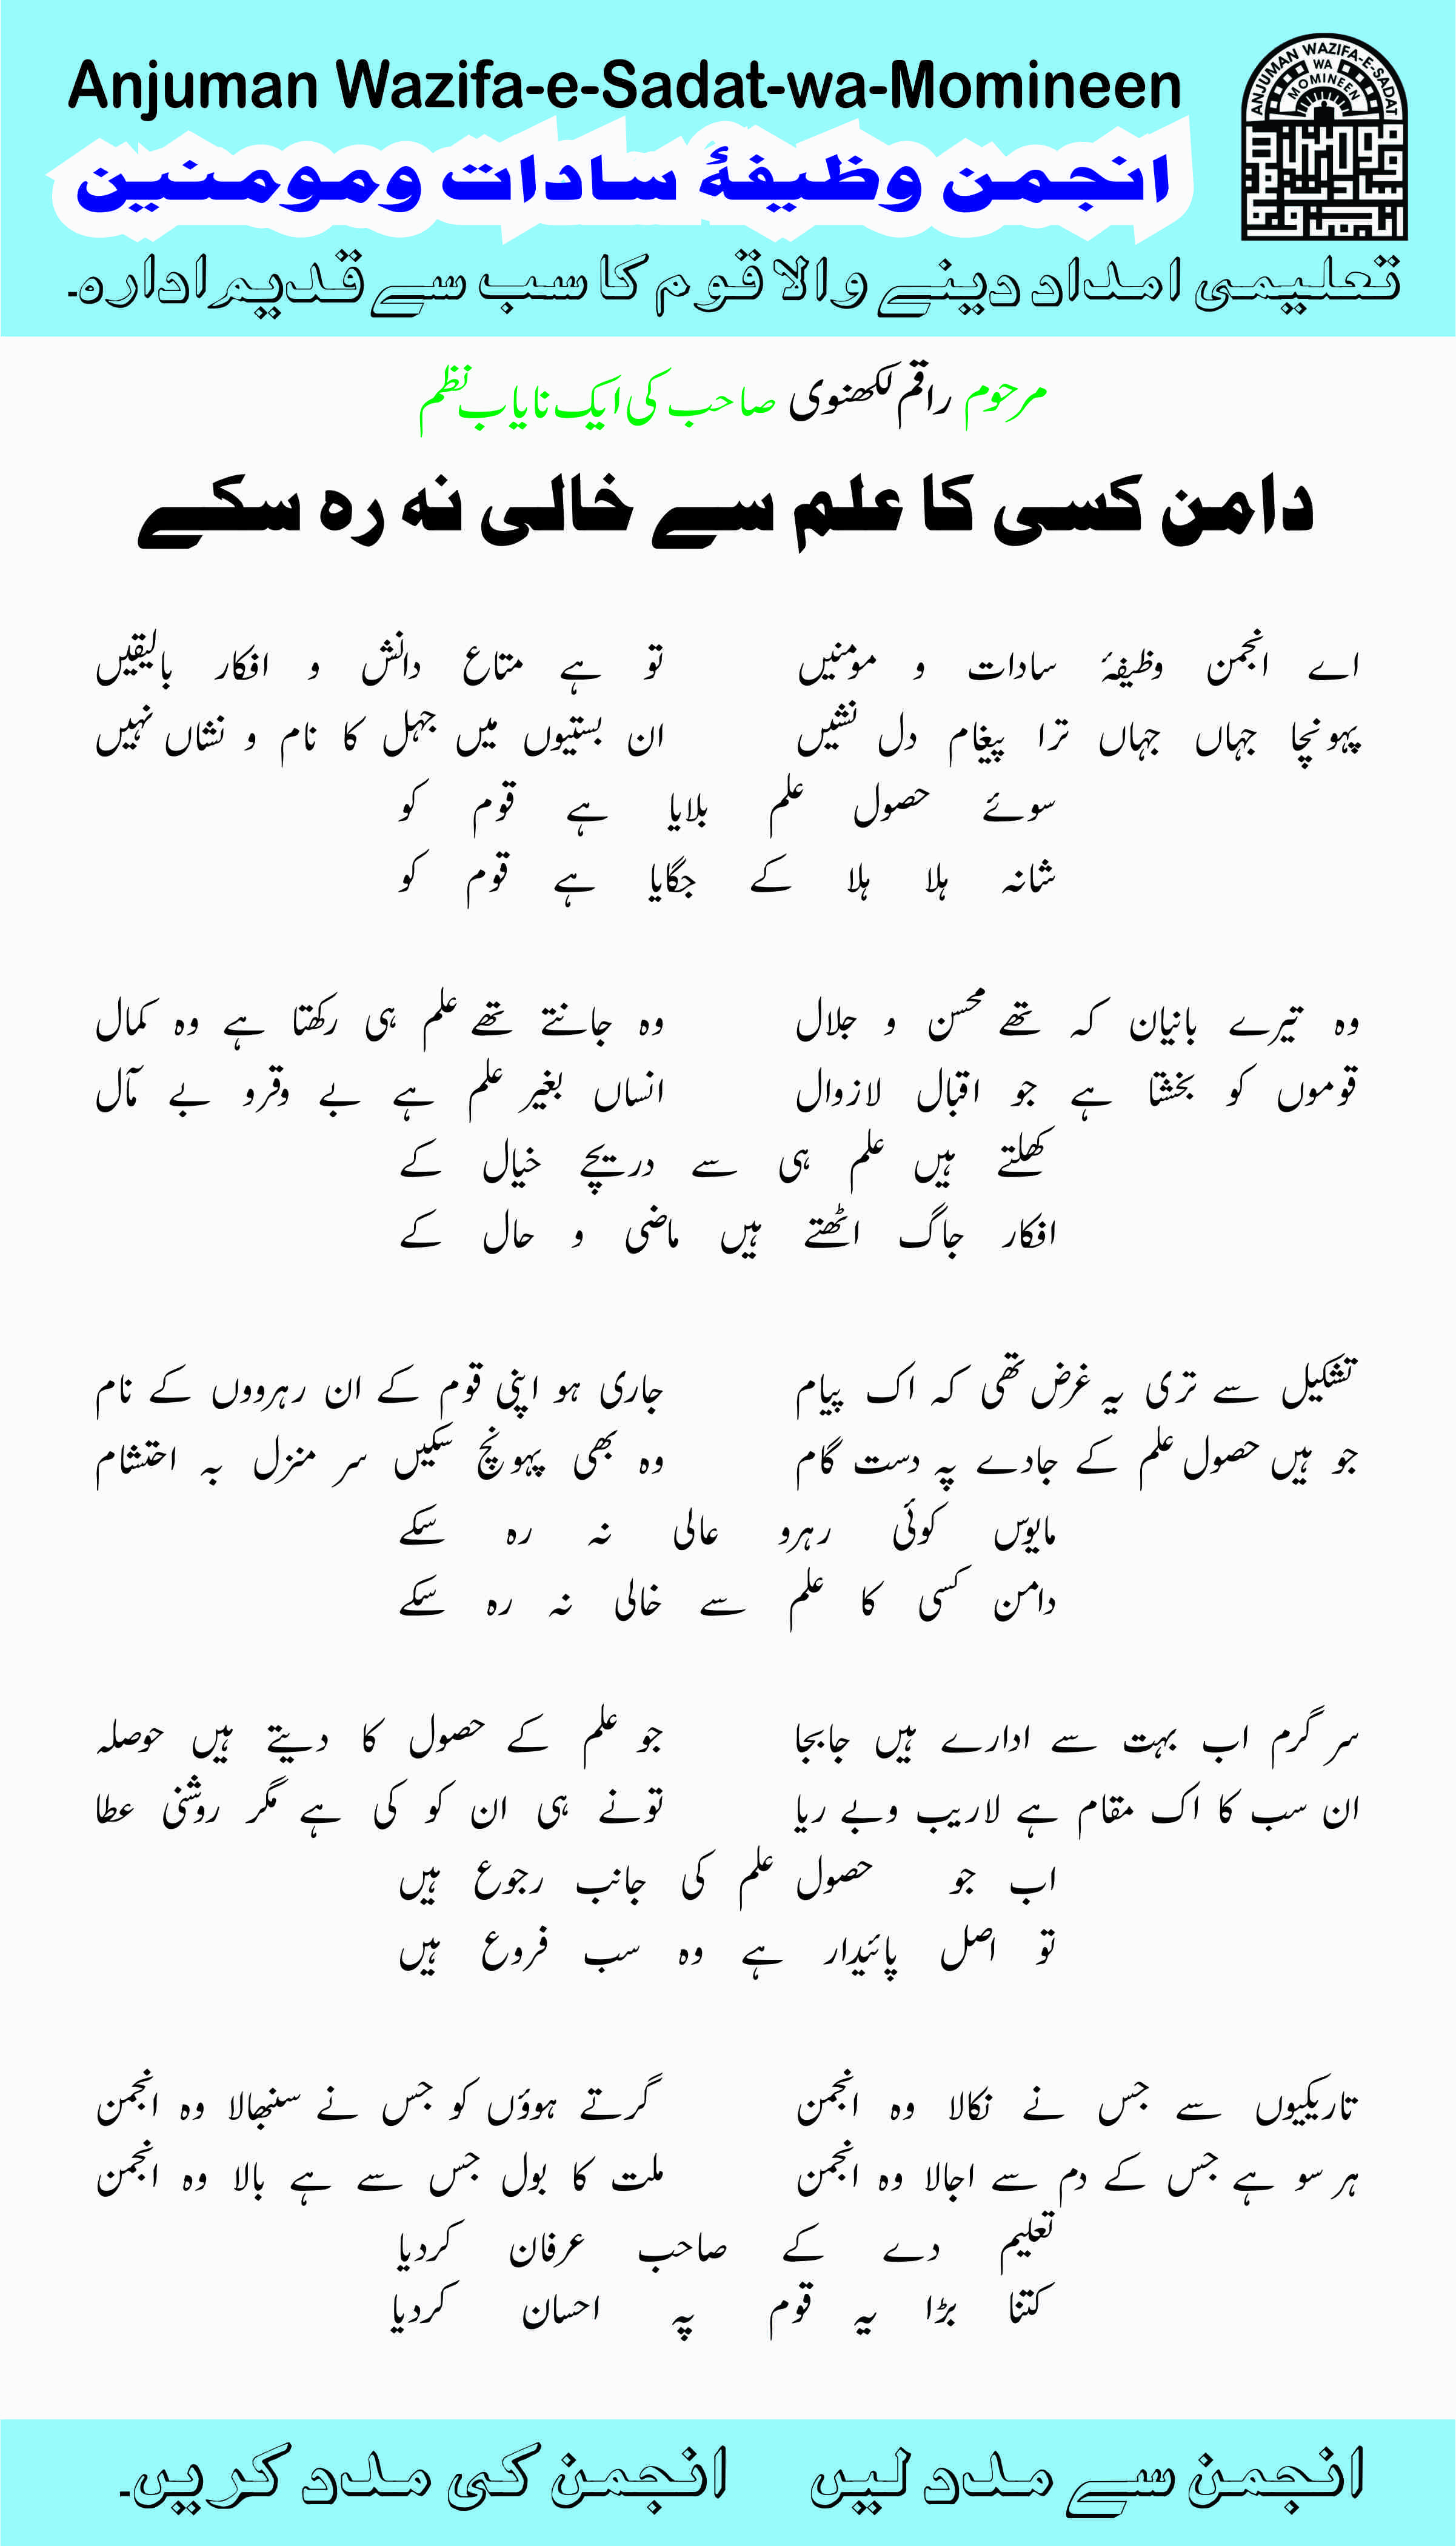 Anjuman Wazifa-e-Sadat-wa-Momineen
ANJUMAN WAZIFA-E-SADAT
WA
MOMINEEN
انجمن وظیفۂ سادات ومومنین
تعلیمی امداد دینے والا قوم کا سب سے قدیم ادارہ۔
مرحوم راقم لکھنوی صاحب کی ایک نایاب نظم
دامن کسی کا علم سے خالی نہ رہ سکے
اے انجمن وظیفۂ سادات و مومنیں تو ہے متاع دانش و افکار بالیقیں
پہونچا جہاں جہاں ترا پیغام دل نشیں ان بستیوں میں جہل کا نام و نشاں نہیں
سوئے حصول علم بلایا ہے قوم کو
شانہ ہلا ہلا کے جگایا ہے قوم کو
وہ تیرے بانیان کہ تھے محسن و جلال وہ جانتے تھے علم ہی رکھتا ہے وہ کمال
قوموں کو بخشتا ہے جو اقبال لازوال انساں بغیر علم ہے بے وقرو بے مآل
کھلتے ہیں علم ہی سے دریچے خیال کے
افکار جاگ اٹھتے ہیں ماضی و حال کے
تشکیل سے تری یہ غرض تھی کہ اک پیام جاری ہو اپنی قوم کے ان رہرووں کے نام
جو ہیں حصول علم کے جادے پہ دست گام وہ بھی پہونچ سکیں سر منزل بہ احتشام
مایوس کوئی رہرو عالی نہ رہ سکے
دامن کسی کا علم سے خالی نہ رہ سکے
سر گرم اب بہت سے ادارے ہیں جابجا جو علم کے حصول کا دیتے ہیں حوصلہ
ان سب کا اک مقام ہے لاریب وبے ریا تونے ہی ان کو کی ہے مگر روشنی عطا
اب جو حصول علم کی جانب رجوع ہیں
تو اصل پائیدار ہے وہ سب فروع ہیں
تاریکیوں سے جس نے نکالا وہ انجمن گرتے ہوؤں کو جس نے سنبھالا وہ انجمن
ہر سو ہے جس کے دم سے اجالا وہ انجمن ملت کا بول جس سے ہے بالا وہ انجمن
تعلیم دے کے صاحب عرفان کردیا
کتنا بڑا یہ قوم پہ احسان کردیا
انجمن سے مدد لیں انجمن کی مدد کریں۔